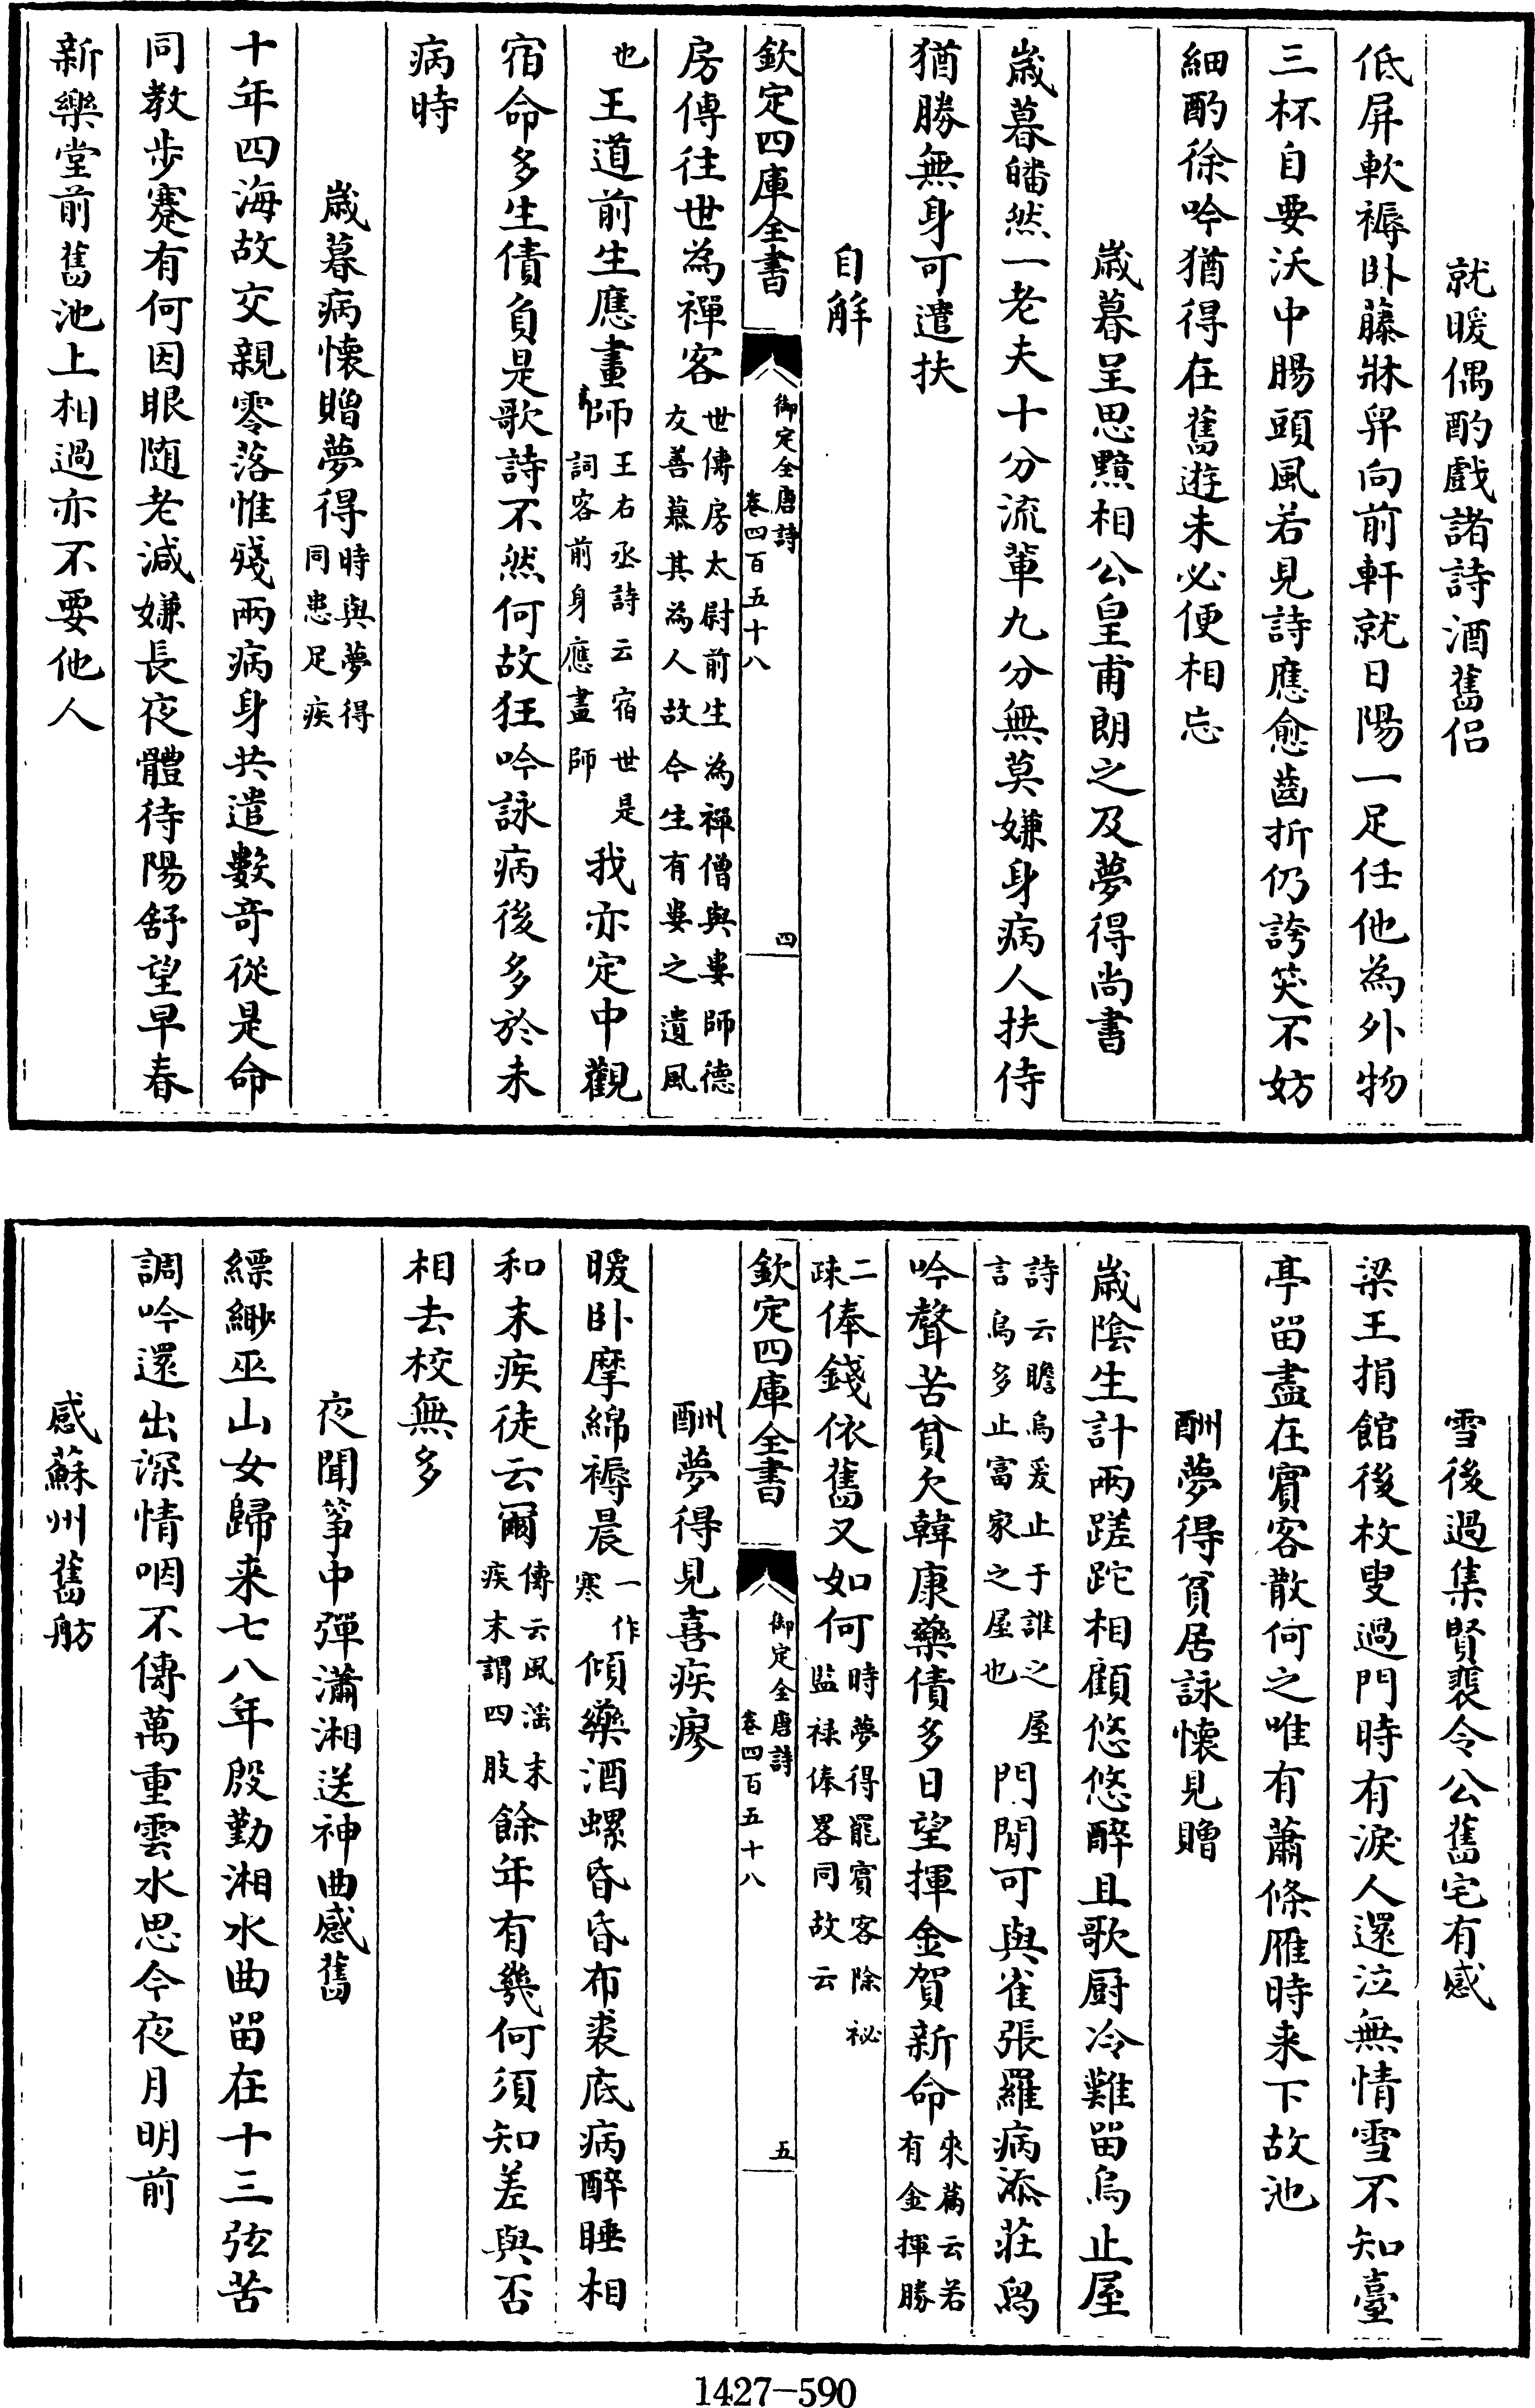 就暖偶酌戲諸詩酒舊侶
低屏軟褥卧藤牀舁向前軒就日陽一足任他為外物
三杯自要沃中腸頭風若見詩應愈齒折仍誇笑不妨
細酌徐吟猶得在舊遊未必便相忘
歲暮呈思黯相公皇甫朗之及夢得尚書
歲暮皤然一老夫十分流輩九分無莫嫌身病人扶侍
猶勝無身可遣扶
自解
欽定四庫全書 御定全唐詩 卷四百五十八 四
房傳往世為禪客世傳房太尉前生為禪僧與婁師德友善慕其為人故今生有婁之遺風
也王道前生應畫師王右丞詩云宿世是詞客前身應畫師我亦定中觀
宿命多生債負是歌詩不然何故狂吟詠病後多於未
病時
歲暮病懷贈夢得時與夢得同患足疾
十年四海故交親零落惟殘兩病身共遣數奇從是命
同教步蹇有何因眼隨老減嫌長夜體待陽舒望早春
新樂堂前舊池上相過亦不要他人
雪後過集賢裴令公舊宅有感
梁王捐館後枚叟過門時有淚人還泣無情雪不知臺
亭留盡在賓客散何之唯有蕭條雁時来下故池
酬夢得貧居詠懷見贈
歲陰生計兩蹉跎相顧悠悠醉且歌厨冷難留烏止屋
詩云瞻烏爰止于誰之屋言烏多止富家之屋也門閒可與雀張羅病添莊舄
吟聲苦貧欠韓康藥債多日望揮金賀新命來篇云若有金揮勝
二疎俸錢依舊又如何時夢得罷賓客除祕監禄俸畧同故云
欽定四庫全書 御定全唐詩 卷四百五十八 五
酬夢得見喜疾瘳
暖卧摩綿褥晨一作寒傾藥酒螺昏昏布裘底病醉睡相
和末疾徒云爾傳云風淫末疾末謂四肢餘年有幾何須知差與否
相去校無多
夜聞筝中彈瀟湘送神曲感舊
縹緲巫山女歸来七八年殷勤湘水曲留在十三弦苦
調吟還出深情咽不傳萬重雲水思今夜月明前
感蘇州舊舫
1427-590